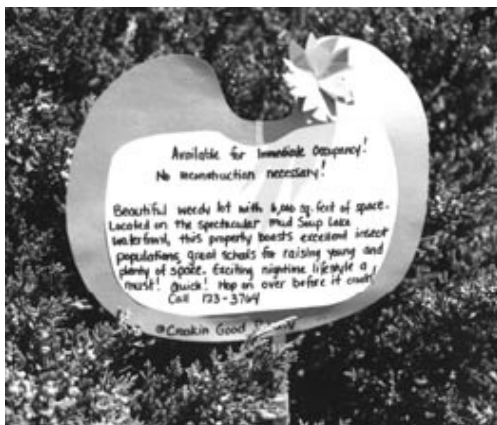 Available for Immediate Occupancy!
No reconstruction necessary!
Beautiful weedy lot with 6,000 sq. feet of space.
Located on the spectacular Mud Soup Lake
waterfront, this property boasts excellent insect
populations, great schools for raising young and
plenty of space. Exciting nightime lifestyle a
must! Quick! Hop on over before it
Call 123-3764
@Croakin Good